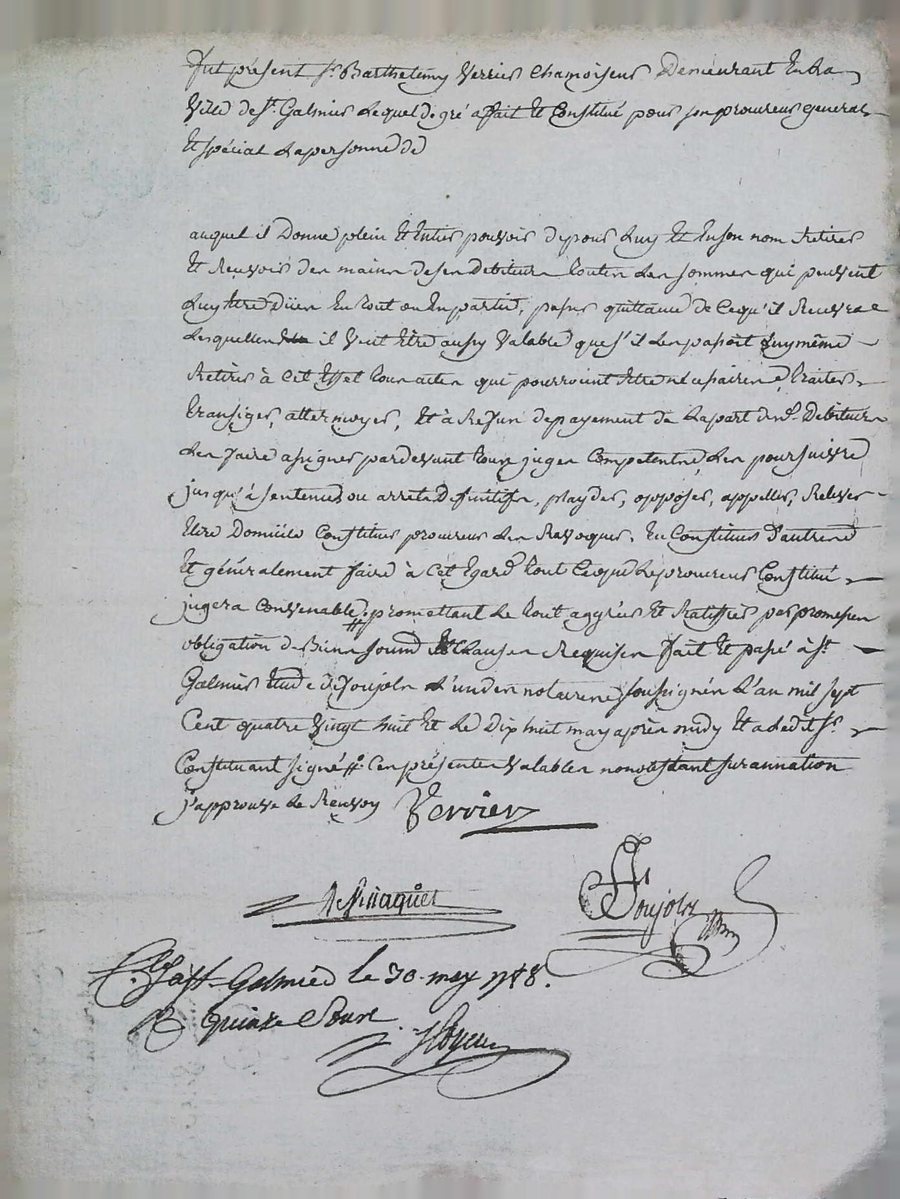 fut présent Sr. Barthelemy Verrier Chamoiseur Demeurant En la
Ville de St. Galmier Lequel de gré a fait Et Constitué pour son procureur general
Et spécial La personne de
auquel il Donne plein Et Entier pouvoir de pour Luy Et En son nom Retirer
Et Recevoir des mains de ses Debiteurs toutes Les sommes qui peuvent
Luy être Dües En tout ou En partie, passer quittance de Ce qu'il Recevra
Lesquelles il Veut Etre aussy Valable que s'il Les passoit Luy même
Retirer à Cet Effet tous actes qui pourroient Etre nécessaires, traiter,
transiger, attermoyer, Et à Refus de payement de La part desd. Debiteurs
Les faire assigner pardevant tous juges Competents, Les poursuivre
jusqu'à sentences ou arrets Definitifs, playder, opposer, appeller, Relever
Elire Domicile Constituer procureur Les Revoquer, En Constituer d'autres
Et généralement faire à Cet Egard tout Ce que Le procureur Constitué
jugera Convenable, promettant Le tout aggréer Et Ratiffier par promesses
obligation de Biens soumd. Et Clauses Requises fait Et passé à St.
Galmier Etude de Soujols L'un des notaires soussignés L'an mil sept
Cent quatre Vingt huit Et Le Dix huit may après midy Et a Ledit Sr.
Constituant signé # Ces présentes Valables nonobstant surannation
j'approuve Le Renvoy Verrier
Soujols
à St Galmier le 30 may 1788.
R quinze Sous